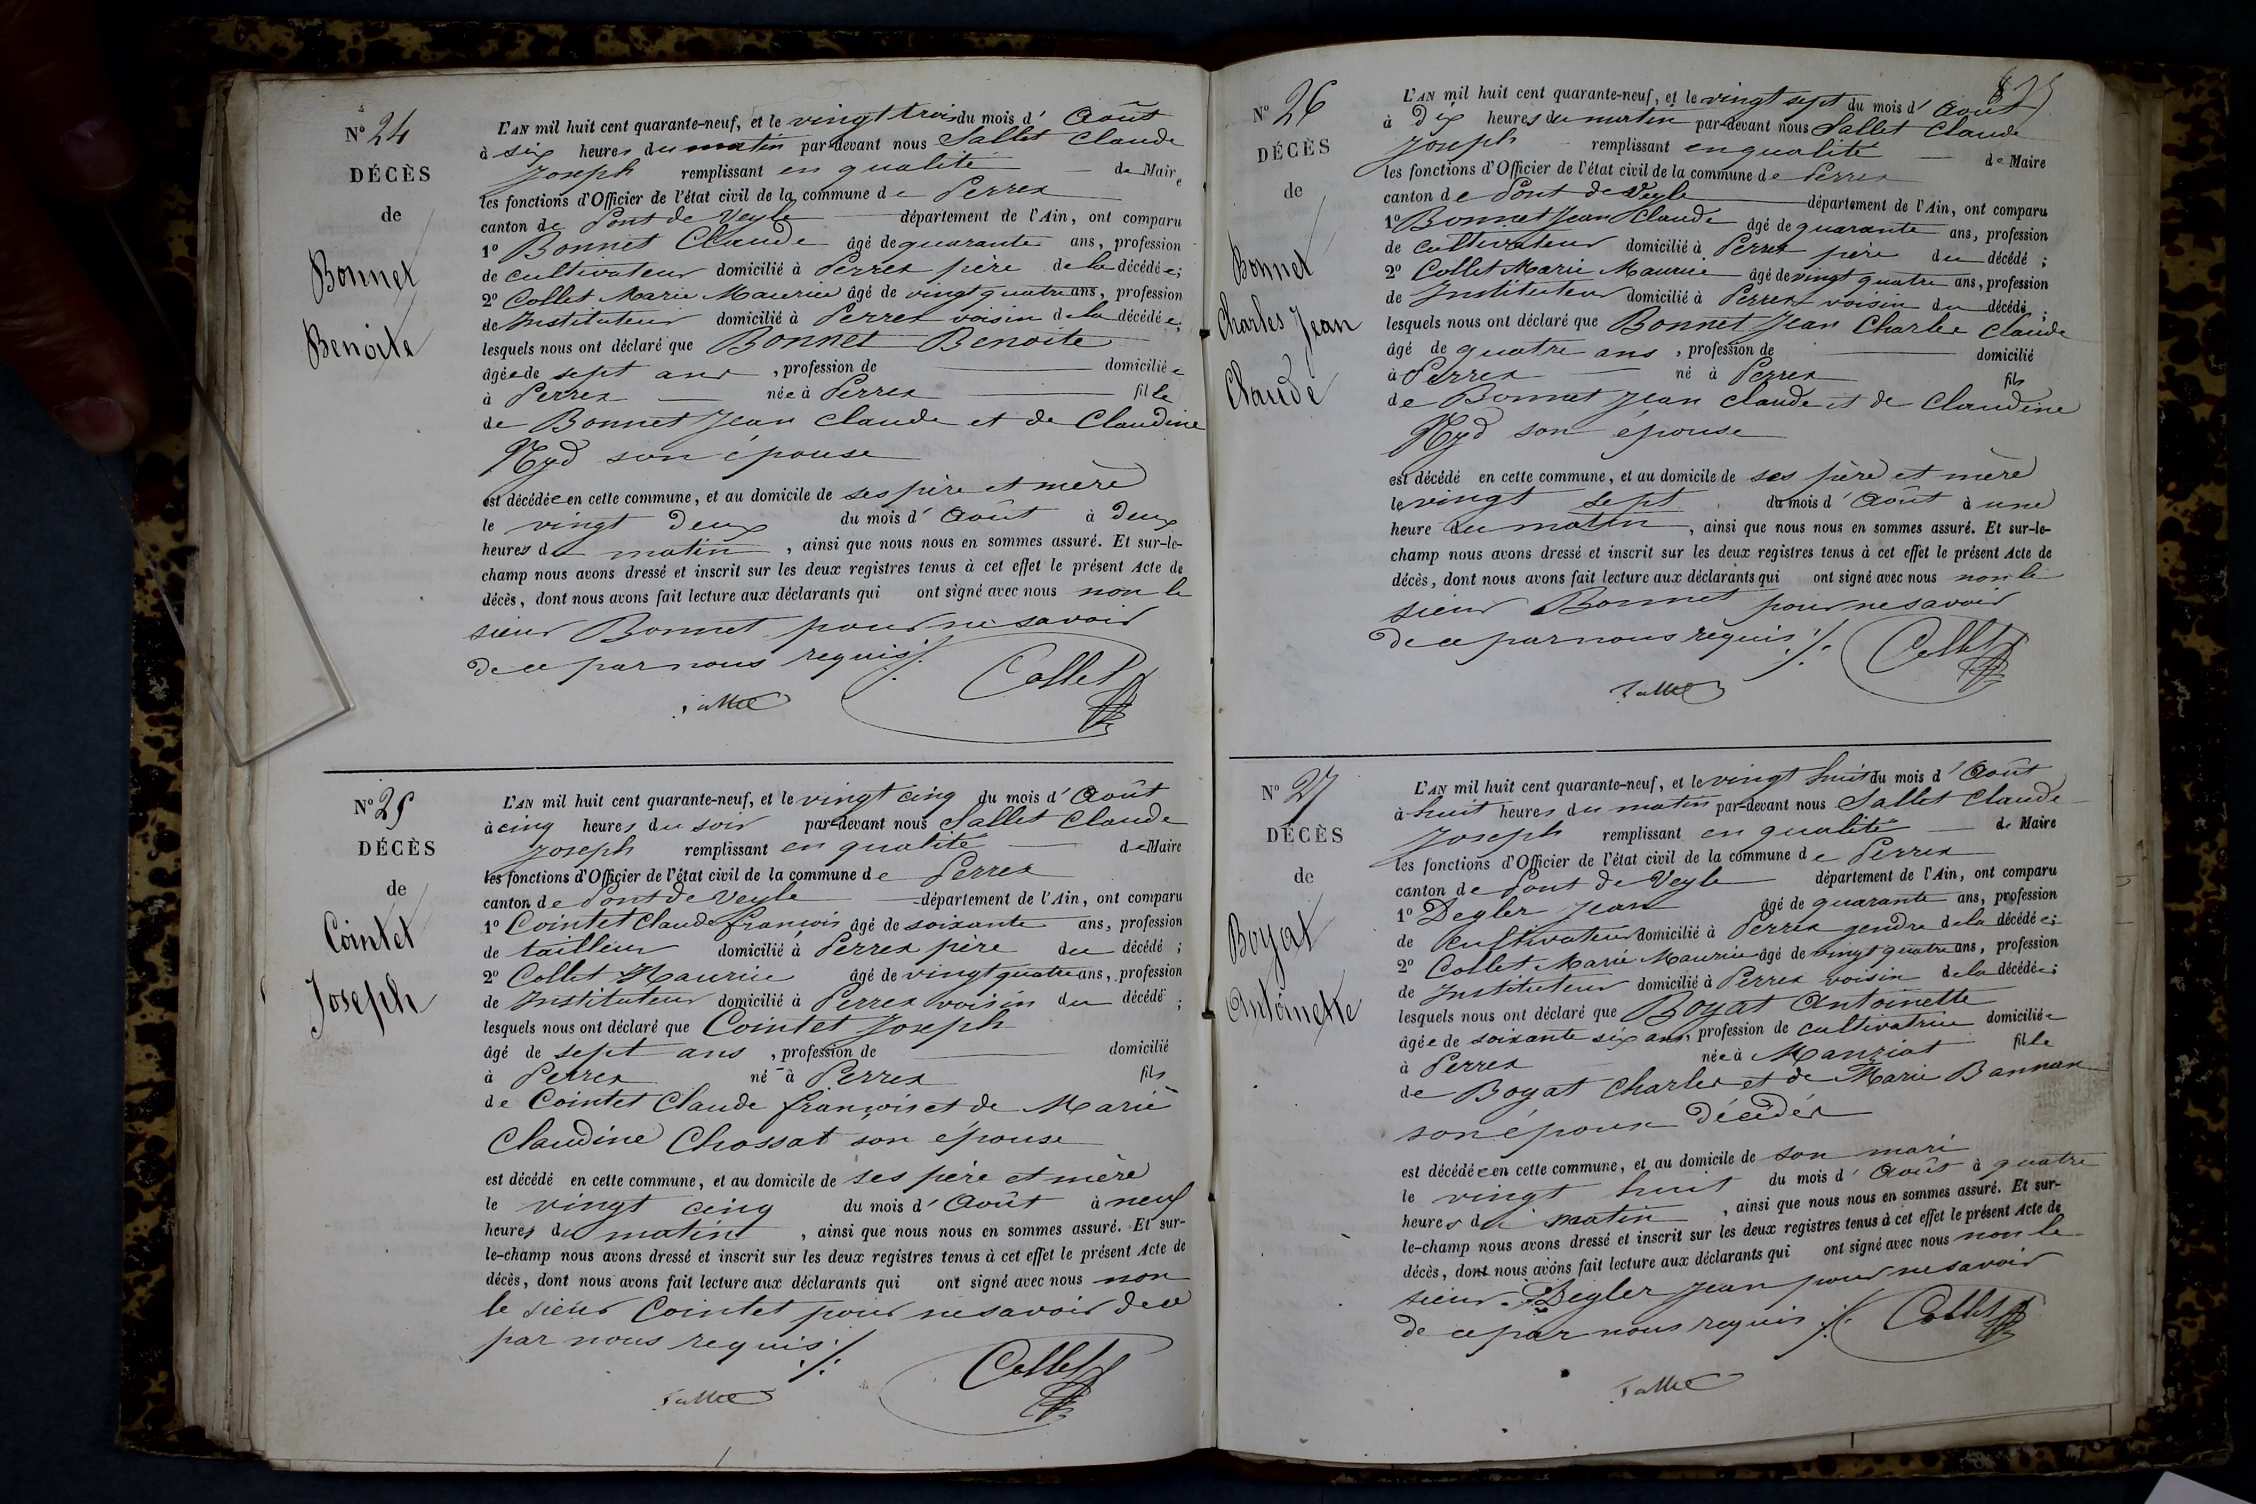 N° 24
DÉCÈS
de
Bonnet
Benoite
L'AN mil huit cent quarante-neuf, et le vingt trois du mois d' Août
à six heures du matin par-devant nous Sallet Claude
Joseph remplissant en qualité de Maire
les fonctions d'Officier de l'état civil de la commune de Perrex
canton de Pont de Veyle département de l'Ain, ont comparu
1° Bonnet Claude âgé de quarante ans, profession
de cultivateur domicilié à Perrex père de la décédée;
2° Collet Marie Maurice âgé de vingt quatre ans, profession
de Instituteur domicilié à Perrex voisin de la décédée;
lesquels nous ont déclaré que Bonnet Benoite
âgée de sept ans, profession de domiciliée
à Perrex née à Perrex fille
de Bonnet Jean Claude et de Claudine
Nyd son épouse
est décédée en cette commune, et au domicile de ses père et mère
le vingt deux du mois d' Août à deux
heures du matin, ainsi que nous nous en sommes assuré. Et sur-le-
champ nous avons dressé et inscrit sur les deux registres tenus à cet effet le présent Acte de
décès, dont nous avons fait lecture aux déclarants qui ont signé avec nous non le
sieur Bonnet pour ne savoir
de ce par nous requis ./.
Collet
Sallet
N° 25
DÉCÈS
de
Cointet
Joseph
L'AN mil huit cent quarante-neuf, et le vingt cinq du mois d' Août
à cinq heures du soir par-devant nous Sallet Claude
Joseph remplissant en qualité de Maire
les fonctions d'Officier de l'état civil de la commune de Perrex
canton de Pont de Veyle département de l'Ain, ont comparu
1° Cointet Claude françois âgé de soixante ans, profession
de tailleur domicilié à Perrex père du décédé;
2° Collet Maurice âgé de vingt quatre ans, profession
de Instituteur domicilié à Perrex voisin du décédé;
lesquels nous ont déclaré que Cointet Joseph
âgé de sept ans, profession de domicilié
à Perrex né à Perrex fils
de Cointet Claude françois et de Marie
Claudine Chossat son épouse
est décédé en cette commune, et au domicile de ses père et mère
le vingt cinq du mois d' Août à neuf
heures du matin, ainsi que nous nous en sommes assuré. Et sur-
le-champ nous avons dressé et inscrit sur les deux registres tenus à cet effet le présent Acte de
décès, dont nous avons fait lecture aux déclarants qui ont signé avec nous non
le sieur Cointet pour ne savoir de ce
par nous requis ./.
Collet
Sallet
N° 26
DÉCÈS
de
Bonnet
Charles Jean
Claude
L'AN mil huit cent quarante-neuf, et le vingt sept du mois d' Août
à Dix heures du matin par-devant nous Sallet Claude
Joseph remplissant en qualité de Maire
les fonctions d'Officier de l'état civil de la commune de Perrex
canton de Pont de Veyle département de l'Ain, ont comparu
1° Bonnet Jean Claude âgé de quarante ans, profession
de cultivateur domicilié à Perrex père du décédé;
2° Collet Marie Maurice âgé de vingt quatre ans, profession
de Instituteur domicilié à Perrex voisin du décédé;
lesquels nous ont déclaré que Bonnet Jean Charles Claude
âgé de quatre ans, profession de domicilié
à Perrex né à Perrex fils
de Bonnet Jean Claude et de Claudine
Nyd son épouse
est décédé en cette commune, et au domicile de ses père et mère
le vingt sept du mois d' Août à une
heure du matin, ainsi que nous nous en sommes assuré. Et sur-le-
champ nous avons dressé et inscrit sur les deux registres tenus à cet effet le présent Acte de
décès, dont nous avons fait lecture aux déclarants qui ont signé avec nous non le
sieur Bonnet pour ne savoir
de ce par nous requis ./.
Collet
Sallet
N° 27
DÉCÈS
de
Boyat
Antoinette
L'AN mil huit cent quarante-neuf, et le vingt huit du mois d' Août
à huit heures du matin par-devant nous Sallet Claude
Joseph remplissant en qualité de Maire
les fonctions d'Officier de l'état civil de la commune de Perrex
canton de Pont de Veyle département de l'Ain, ont comparu
1° Degler Jean âgé de quarante ans, profession
de cultivateur domicilié à Perrex gendre de la décédée;
2° Collet Marie Maurice âgé de vingt quatre ans, profession
de Instituteur domicilié à Perrex voisin de la décédée;
lesquels nous ont déclaré que Boyat Antoinette
âgée de soixante six ans, profession de cultivatrice domiciliée
à Perrex née à Manziat fille
de Boyat Charles et de Marie Bannan
son époux décédés
est décédée en cette commune, et au domicile de son mari
le vingt huit du mois d' Août à quatre
heures du matin, ainsi que nous nous en sommes assuré. Et sur-
le-champ nous avons dressé et inscrit sur les deux registres tenus à cet effet le présent Acte de
décès, dont nous avons fait lecture aux déclarants qui ont signé avec nous non le
sieur Degler Jean pour ne savoir
de ce par nous requis ./.
Collet
Sallet